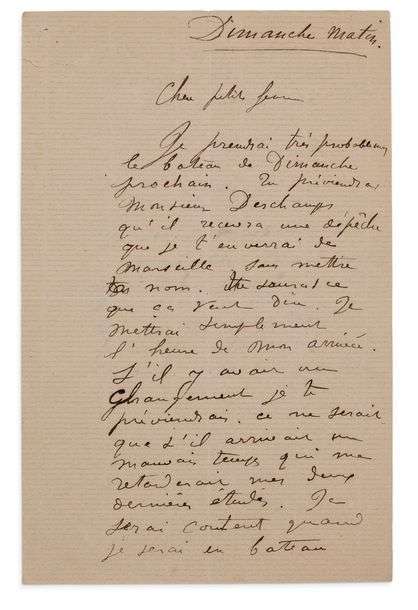 Dimanche matin.
Cher petit
Je prendrai très probablement
le bateau de Dimanche
prochain. Tu préviendras
Monsieur Deschamps
qu'il recevra une dépêche
que je t'enverrai de
Marseille sans mettre
nom. sauras ce
que ça veut dire. Je
mettrai simplement
l'heure de mon arrivée.
S'il y avait un
Changement je te
préviendrais. ce ne serait
que s'il arrivait un
mauvais temps qui me
retarderait mes deux
dernières études. Je
serai content quand
je serai en bateau